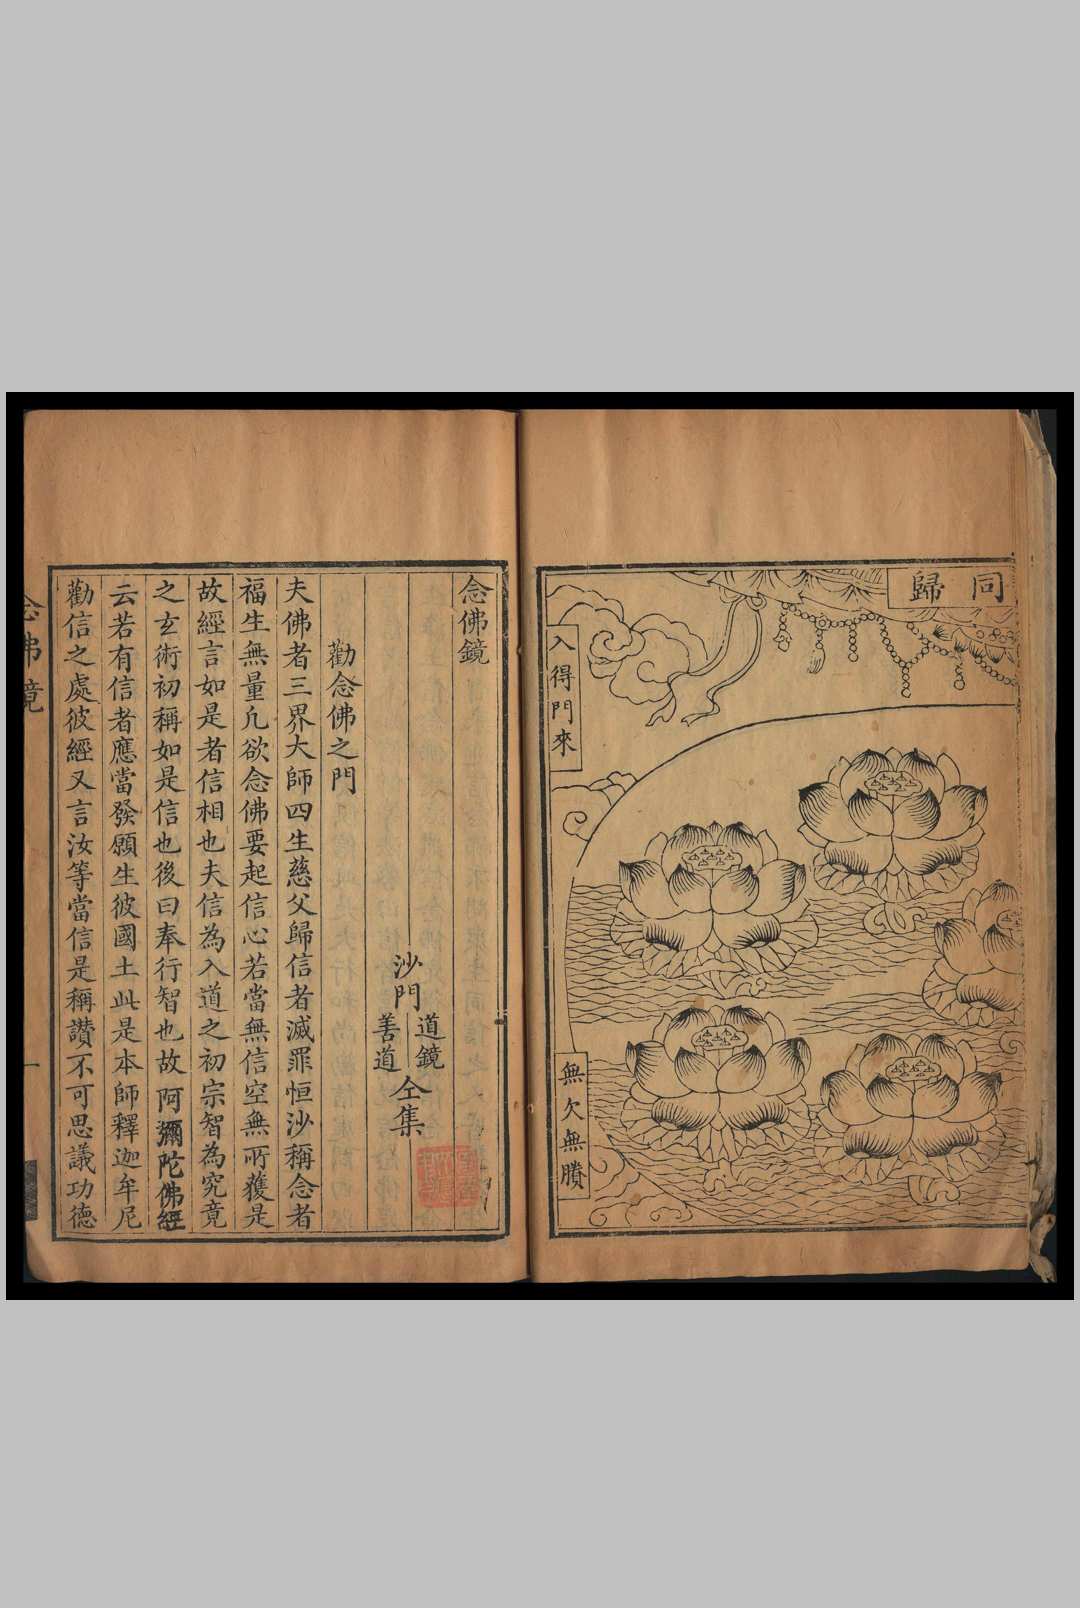 同歸
入得門來
無欠無賸
念佛鏡
沙門道鏡善道仝集
勸念佛之門
夫佛者三界大師四生慈父歸信者滅罪恒沙稱念者
福生無量凢欲念佛要起信心若當無信空無所獲是
故經言如是者信相也夫信為入道之初宗智為究竟
之玄術初稱如是信也後曰奉行智也故阿彌陀佛經
云若有信者應當發願生彼國土此是本師釋迦牟尼
勸信之處彼經又言汝等當信是稱讚不可思議功德
念佛鏡
一